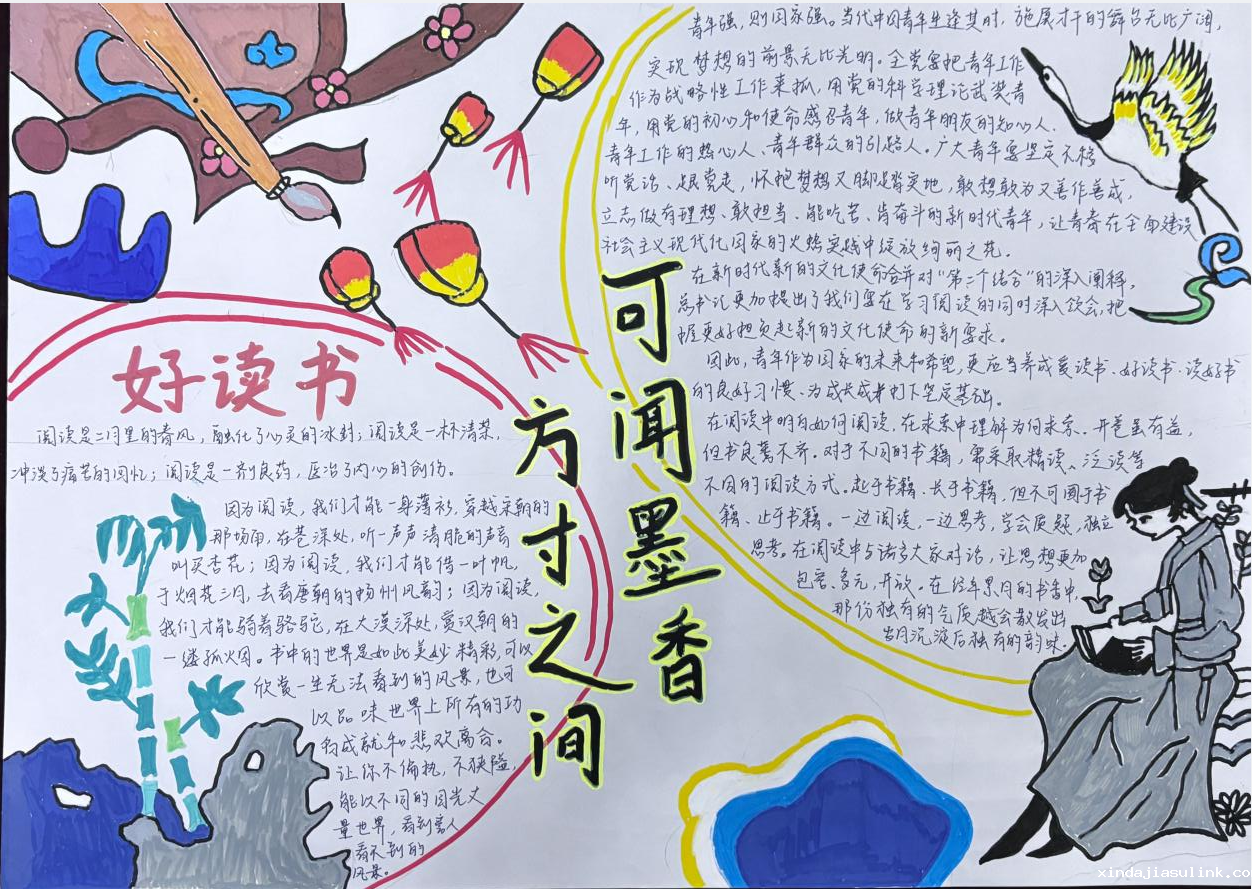 好读书
阅读是二月里的春风，融化了心灵的冰封；阅读是一杯清茶，
冲淡了痛苦的回忆；阅读是一剂良药，医治了内心的创伤。
因为阅读，我们才能一身薄衫，穿越宋朝的
那场雨，在巷深处，听一声声清脆的声音
叫卖杏花；因为阅读，我们才能借一叶帆，
于烟花三月，去看唐朝的扬州风韵；因为阅读，
我们才能骑着骆驼，在大漠深处，赏汉朝的
一缕孤烟。书中的世界是如此美妙精彩，可以
欣赏一生无法看到的风景，也可
以品味世界上所有的功
名成就和悲欢离合。
让你不偏执，不狭隘，
能以不同的目光丈
量世界，看到旁人
看不到的
风景。
方寸之间
可闻墨香
青年强，则国家强。当代中国青年生逢其时，施展才干的舞台无比广阔，
实现梦想的前景无比光明。全党要把青年工作
作为战略性工作来抓，用党的科学理论武装青
年，用党的初心和使命感召青年，做青年朋友的知心人、
青年工作的热心人、青年群众的引路人。广大青年要坚定不移
听党话、跟党走，怀抱梦想又脚踏实地，敢想敢为又善作善成，
立志做有理想、敢担当、能吃苦、肯奋斗的新时代青年，让青春在全面建设
社会主义现代化国家的火热实践中绽放绚丽之花。
在新时代新的文化使命合并对“第二个结合”的深入阐释，
总书记更加提出了我们要在学习阅读的同时深入饮会，把
握更好担负起新的文化使命的新要求。
因此，青年作为国家的未来和希望，更应当养成爱读书、好读书、读好书
的良好习惯、为成长成才打下坚定基础。
在阅读中明白如何阅读，在求索中理解为何求索。开卷虽有益，
但书良莠不齐。对于不同的书籍，需采取精读、泛读等
不同的阅读方式。起于书籍、长于书籍，但不可囿于书
籍、止于书籍。一边阅读，一边思考，学会质疑，独立
思考。在阅读中与诸多大家对话，让思想更加
包容、多元、开放。在经年累月的书香中，
那份独有的气质越会散发出
岁月沉淀后独有的韵味。
xindajiasulink.co